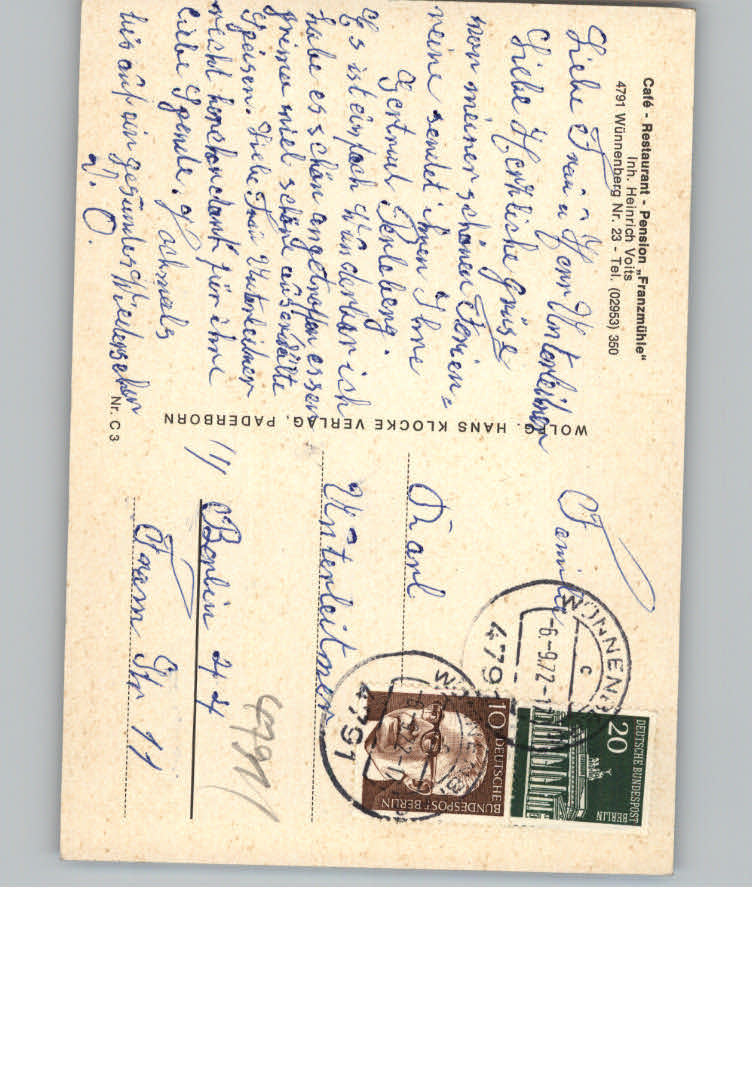 Café - Restaurant - Pension „Franzmühle"
Inh. Heinrich Voits
4791 Wünnenberg Nr. 23 - Tel. (02953) 350
Liebe Frau u Herr Unterleitner
Liebe Herzliche Grüse
von meiner schönen Ferien=
reine sendet ihnen Ihre
Gertrud Perleberg.
Es ist einfach Wunderbar ich
habe es schön angetroffen essen
prima viel schöne ausgewälte
Speisen. Liebe Frau Unterleitner
recht herzlichen dank für ihre
liebe Spende. Nochmals
bis auf ein gesundes Wiedersehen
D. O.
WOLFG. HANS KLOCKE VERLAG, PADERBORN
Nr. C 3
Familie
Karl
Unterleitner
1/ Berlin 44
Fram Str 11
4791
WÜNNENB
c
-6.-9.72-1
4791
WÜNNENB
4791
DEUTSCHE BUNDESPOST
BERLIN
20
DEUTSCHE
BUNDESPOST BERLIN
10